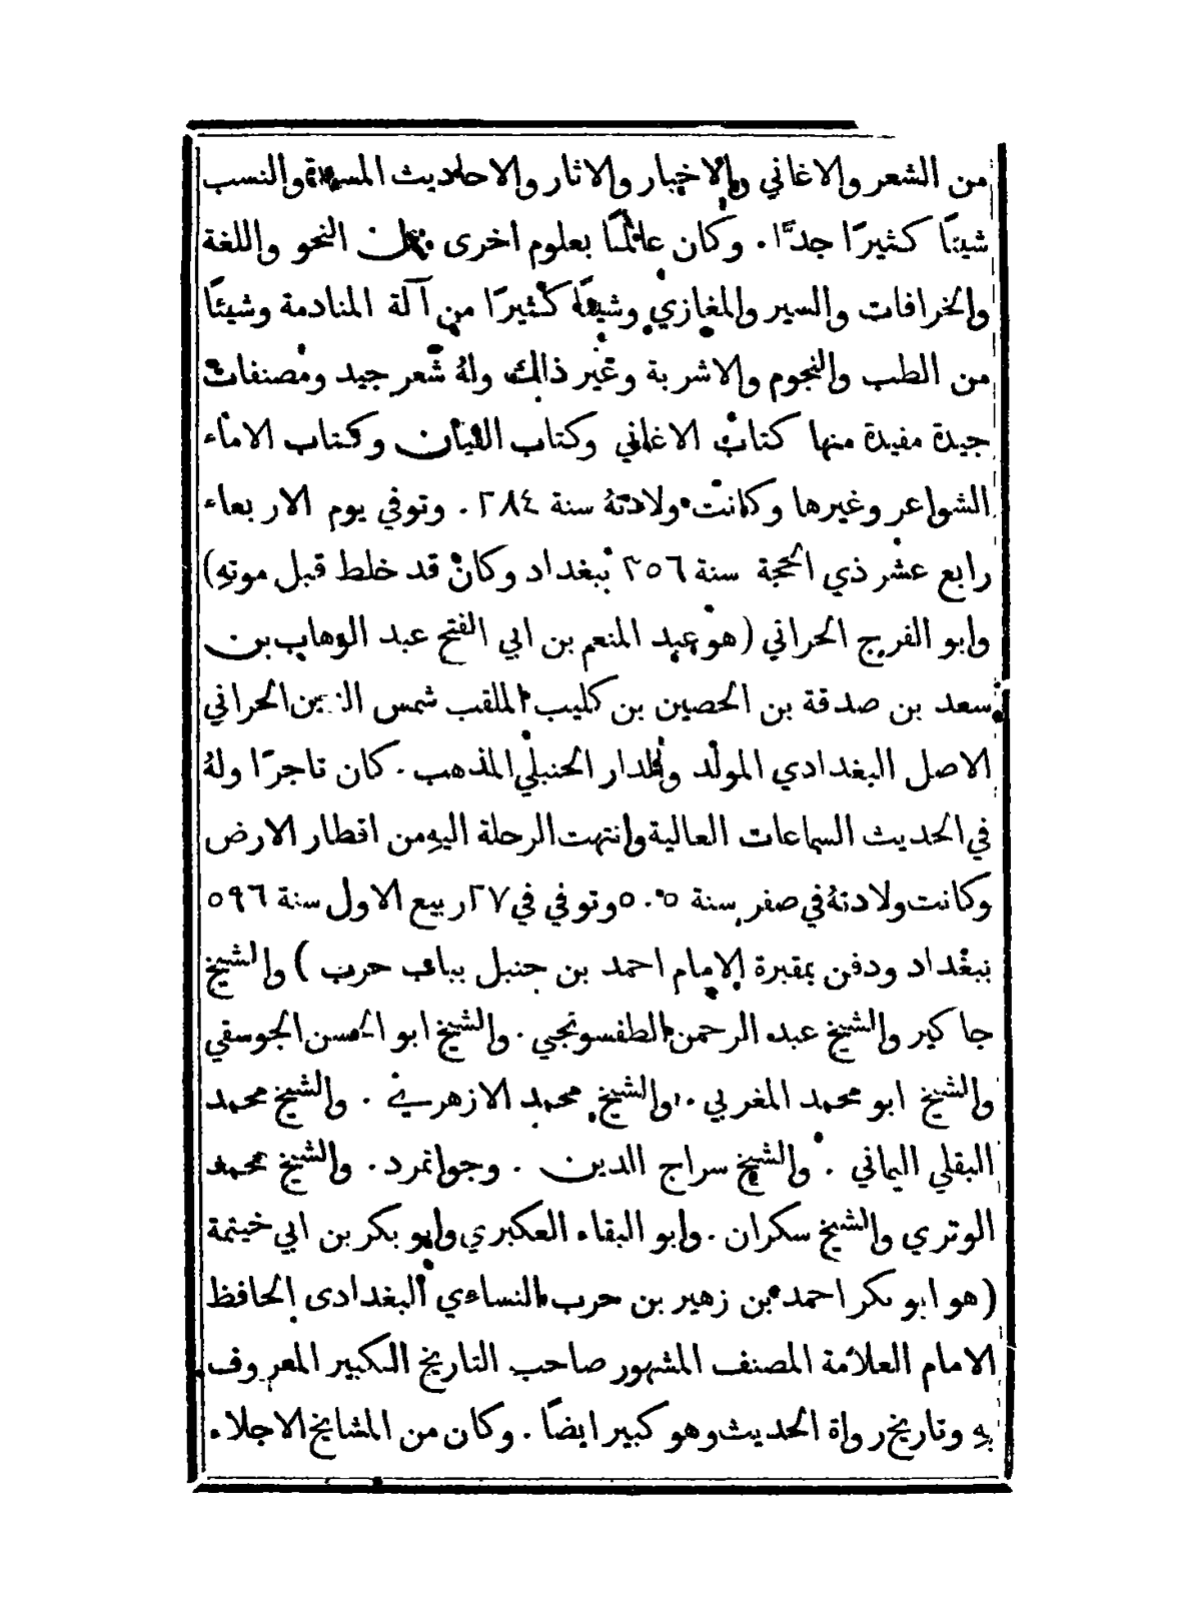 من الشعر والاغاني والاخبار والاثار والاحاديث المسندة والنسب
شيئًا كثيرًا جدًّا . وكان عالمًا بعلوم اخرى النحو واللغة
والخرافات والسير والمغازي وشيئًا كثيرًا من آلة المنادمة وشيئًا
من الطب والنجوم والاشربة وغير ذالك ولهُ شعر جيد ومصنفات
جيدة مفيدة منها كتاب الاغاني وكتاب القيان وكتاب الاماء
الشواعر وغيرها وكانت ولادتهُ سنة ٢٨٤ . وتوفي يوم الاربعاء
رابع عشر ذي الحجة سنة ٣٥٦ ببغداد وكان قد خلط قبل موتهِ)
وابو الفرج الحراني (هو عبد المنعم بن ابي الفتح عبد الوهاب بن
سعد بن صدقة بن الحصين بن كليب الملقب شمس الدين الحراني
الاصل البغدادي المولد والدار الحنبلي المذهب . كان تاجرًا ولهُ
في الحديث السماعات العالية وانتهت الرحلة اليهِ من اقطار الارض
وكانت ولادتهُ في صفر سنة ٥٠٥ وتوفي في ٢٧ ربيع الاول سنة ٥٩٦
ببغداد ودفن بمقبرة الامام احمد بن حنبل بباب حرب ) والشيخ
جاكير والشيخ عبد الرحمن الطفسونجي . والشيخ ابو الحسن الجوسقي
والشيخ ابو محمد المغربي . والشيخ محمد الازهري . والشيخ محمد
البقلي اليماني . والشيخ سراج الدين . وجوانمرد . والشيخ محمد
الوتري والشيخ سكران . وابو البقاء العكبري وابو بكر بن ابي خيثمة
(هو ابو بكر احمد بن زهير بن حرب النساءي البغدادى الحافظ
الامام العلامة المصنف المشهور صاحب التاريخ الكبير المعروف
بهِ وتاريخ رواة الحديث وهو كبير ايضًا . وكان من المشايخ الاجلاء